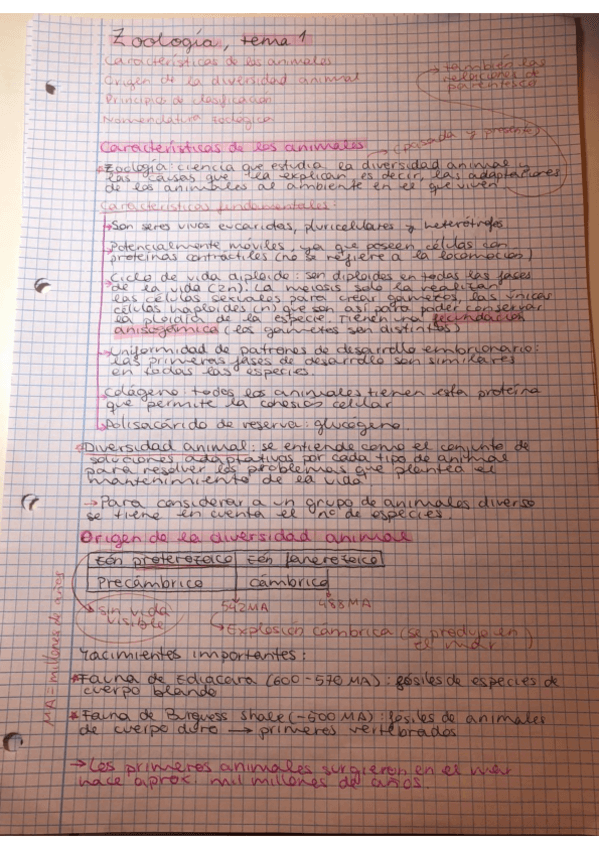 Zoología, tema 1
Características de los animales
Origen de la diversidad animal
Principios de clasificación
Nomenclatura zoológica
→ también las
relaciones de
parentesco
Características de los animales
(pasada y presente)
Zoología: ciencia que estudia la diversidad animal y
las causas que la explican, es decir, las adaptaciones
de los animales al ambiente en el que viven
Características fundamentales:
Son seres vivos eucariotas, pluricelulares y heterótrofos
Potencialmente móviles, ya que poseen células con
proteínas contráctiles (no se refiere a la locomoción)
Ciclo de vida diploide: son diploides en todas las fases
de la vida (2n). La meiosis solo la realizan
las células sexuales para crear gametos, las únicas
células haploides (n) que son así para poder conservar
la ploidía de la especie. Tienen una fecundación
anisogámica (los gametos son distintos)
Uniformidad de patrones de desarrollo embrionario:
las primeras fases de desarrollo son similares
en todas las especies.
Colágeno: todos los animales tienen esta proteína
que permite la cohesión celular
Polisacárido de reserva: glucógeno.
Diversidad animal: se entiende como el conjunto de
soluciones adaptativas por cada tipo de animal
para resolver los problemas que plantea el
mantenimiento de la vida
→ Para considerar a un grupo de animales diverso
se tiene en cuenta el nº de especies.
Origen de la diversidad animal
Eón proterozoico Eón fanerozoico
Precámbrico cámbrico
sin vida visible
542MA 488MA
→ Explosión cámbrica (se produjo en
el mar)
MA = millones de años
Yacimientos importantes:
* Fauna de Ediacara (600-570 MA): fósiles de especies de
cuerpo blando
* Fauna de Burguess Shale (~500 MA): fósiles de animales
de cuerpo duro → primeros vertebrados
→ Los primeros animales surgieron en el mar
hace aprox. mil millones de años.